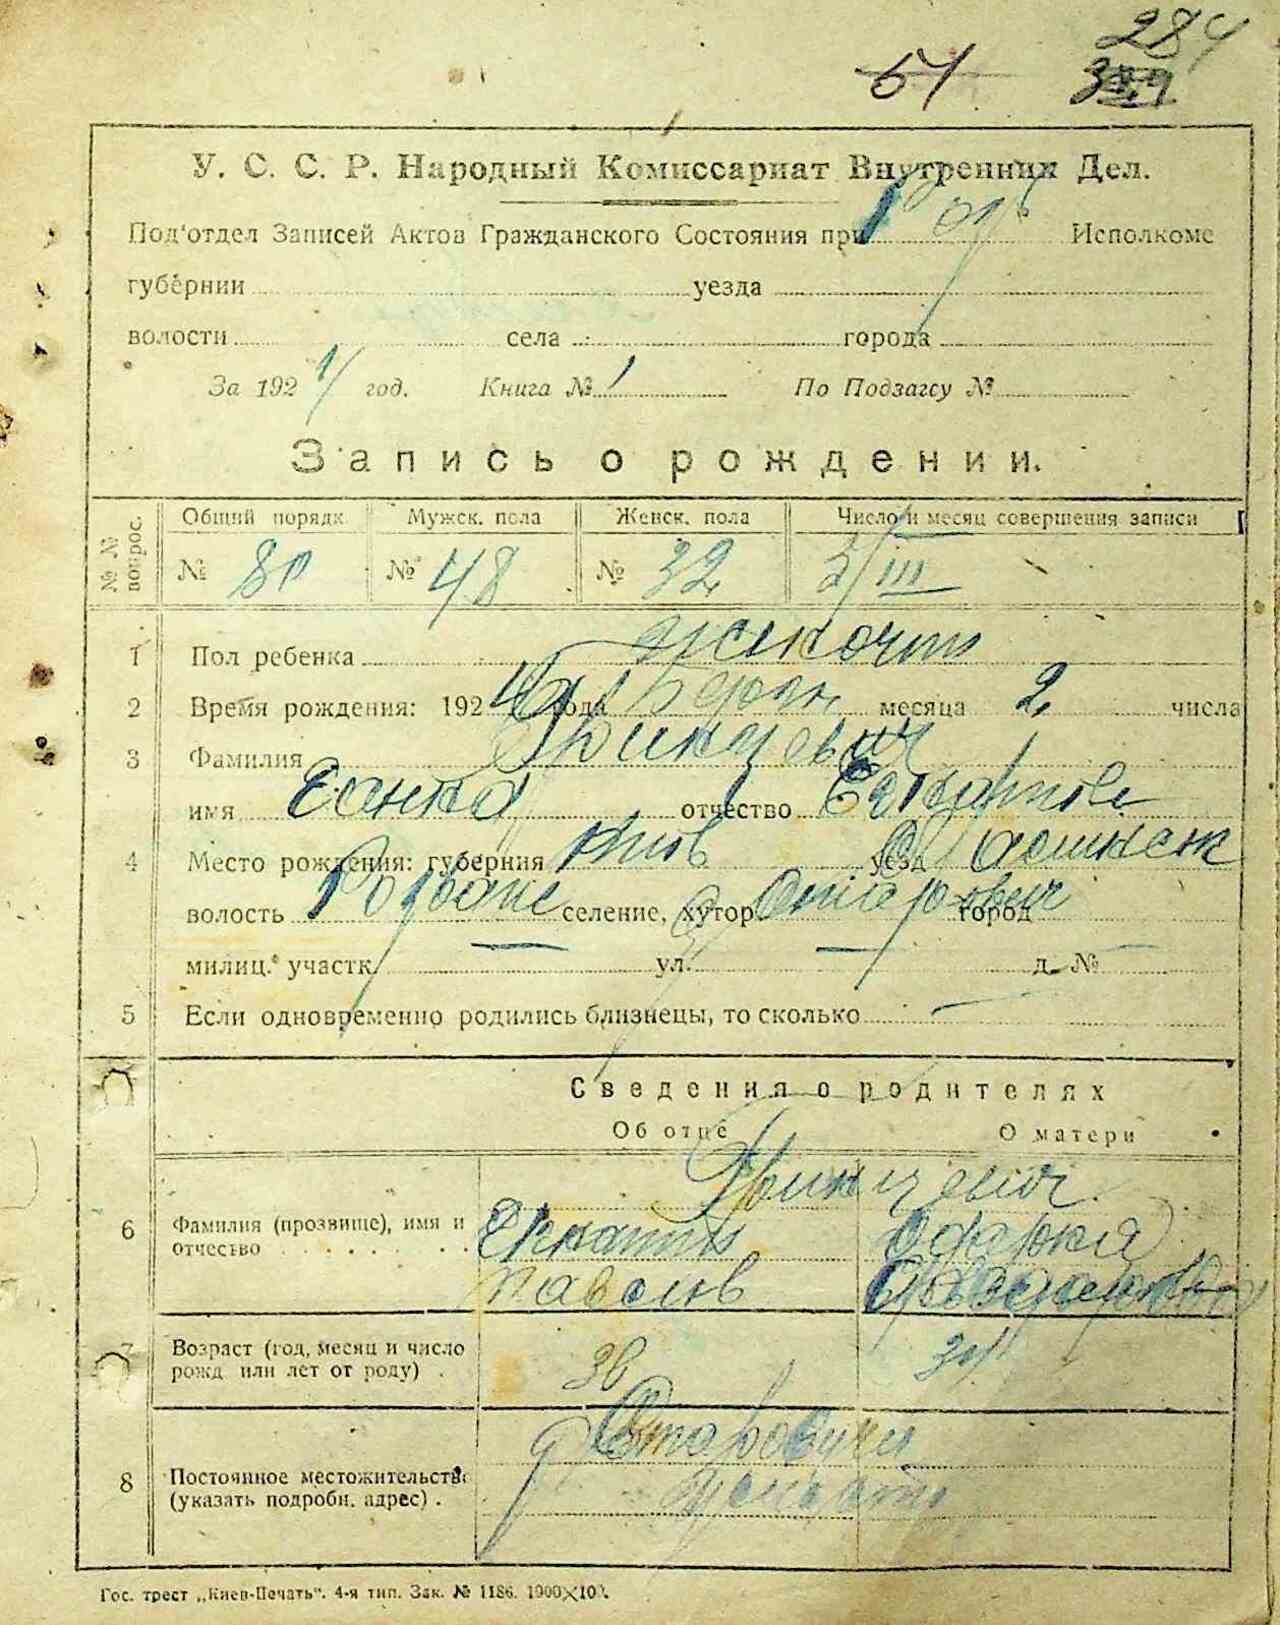 284
51
У. С. С. Р. Народный Комиссариат Внутренних Дел.
Под'отдел Записей Актов Гражданского Состояния при Исполкоме
губернии уезда
волости села города
За 1924 год. Книга № 1 По Подзагсу №
Запись о рождении.
№ № вопрос. Общий порядк. Мужск. пола Женск. пола Число и месяц совершения записи
№ 80 № 48 № 32 3/III
1 Пол ребенка
2 Время рождения: 1924 года месяца 2 числа
3 Фамилия Гринцевич
имя Ганна отчество
4 Место рождения: губерния Київ уезд
волость селение, хутор город
милиц. участк. — ул. — д. № —
5 Если одновременно родились близнецы, то сколько —
Сведения о родителях
Об отце О матери
Гринцевич
6 Фамилия (прозвище), имя и отчество Одарка
7 Возраст (год, месяц и число рожд. или лет от роду) . 38 34
8 Постоянное местожительств: (указать подробн. адрес) . с. Старовичі
Гос. трест „Киев-Печать“. 4-я тип. Зак. № 1186. 1000×100.